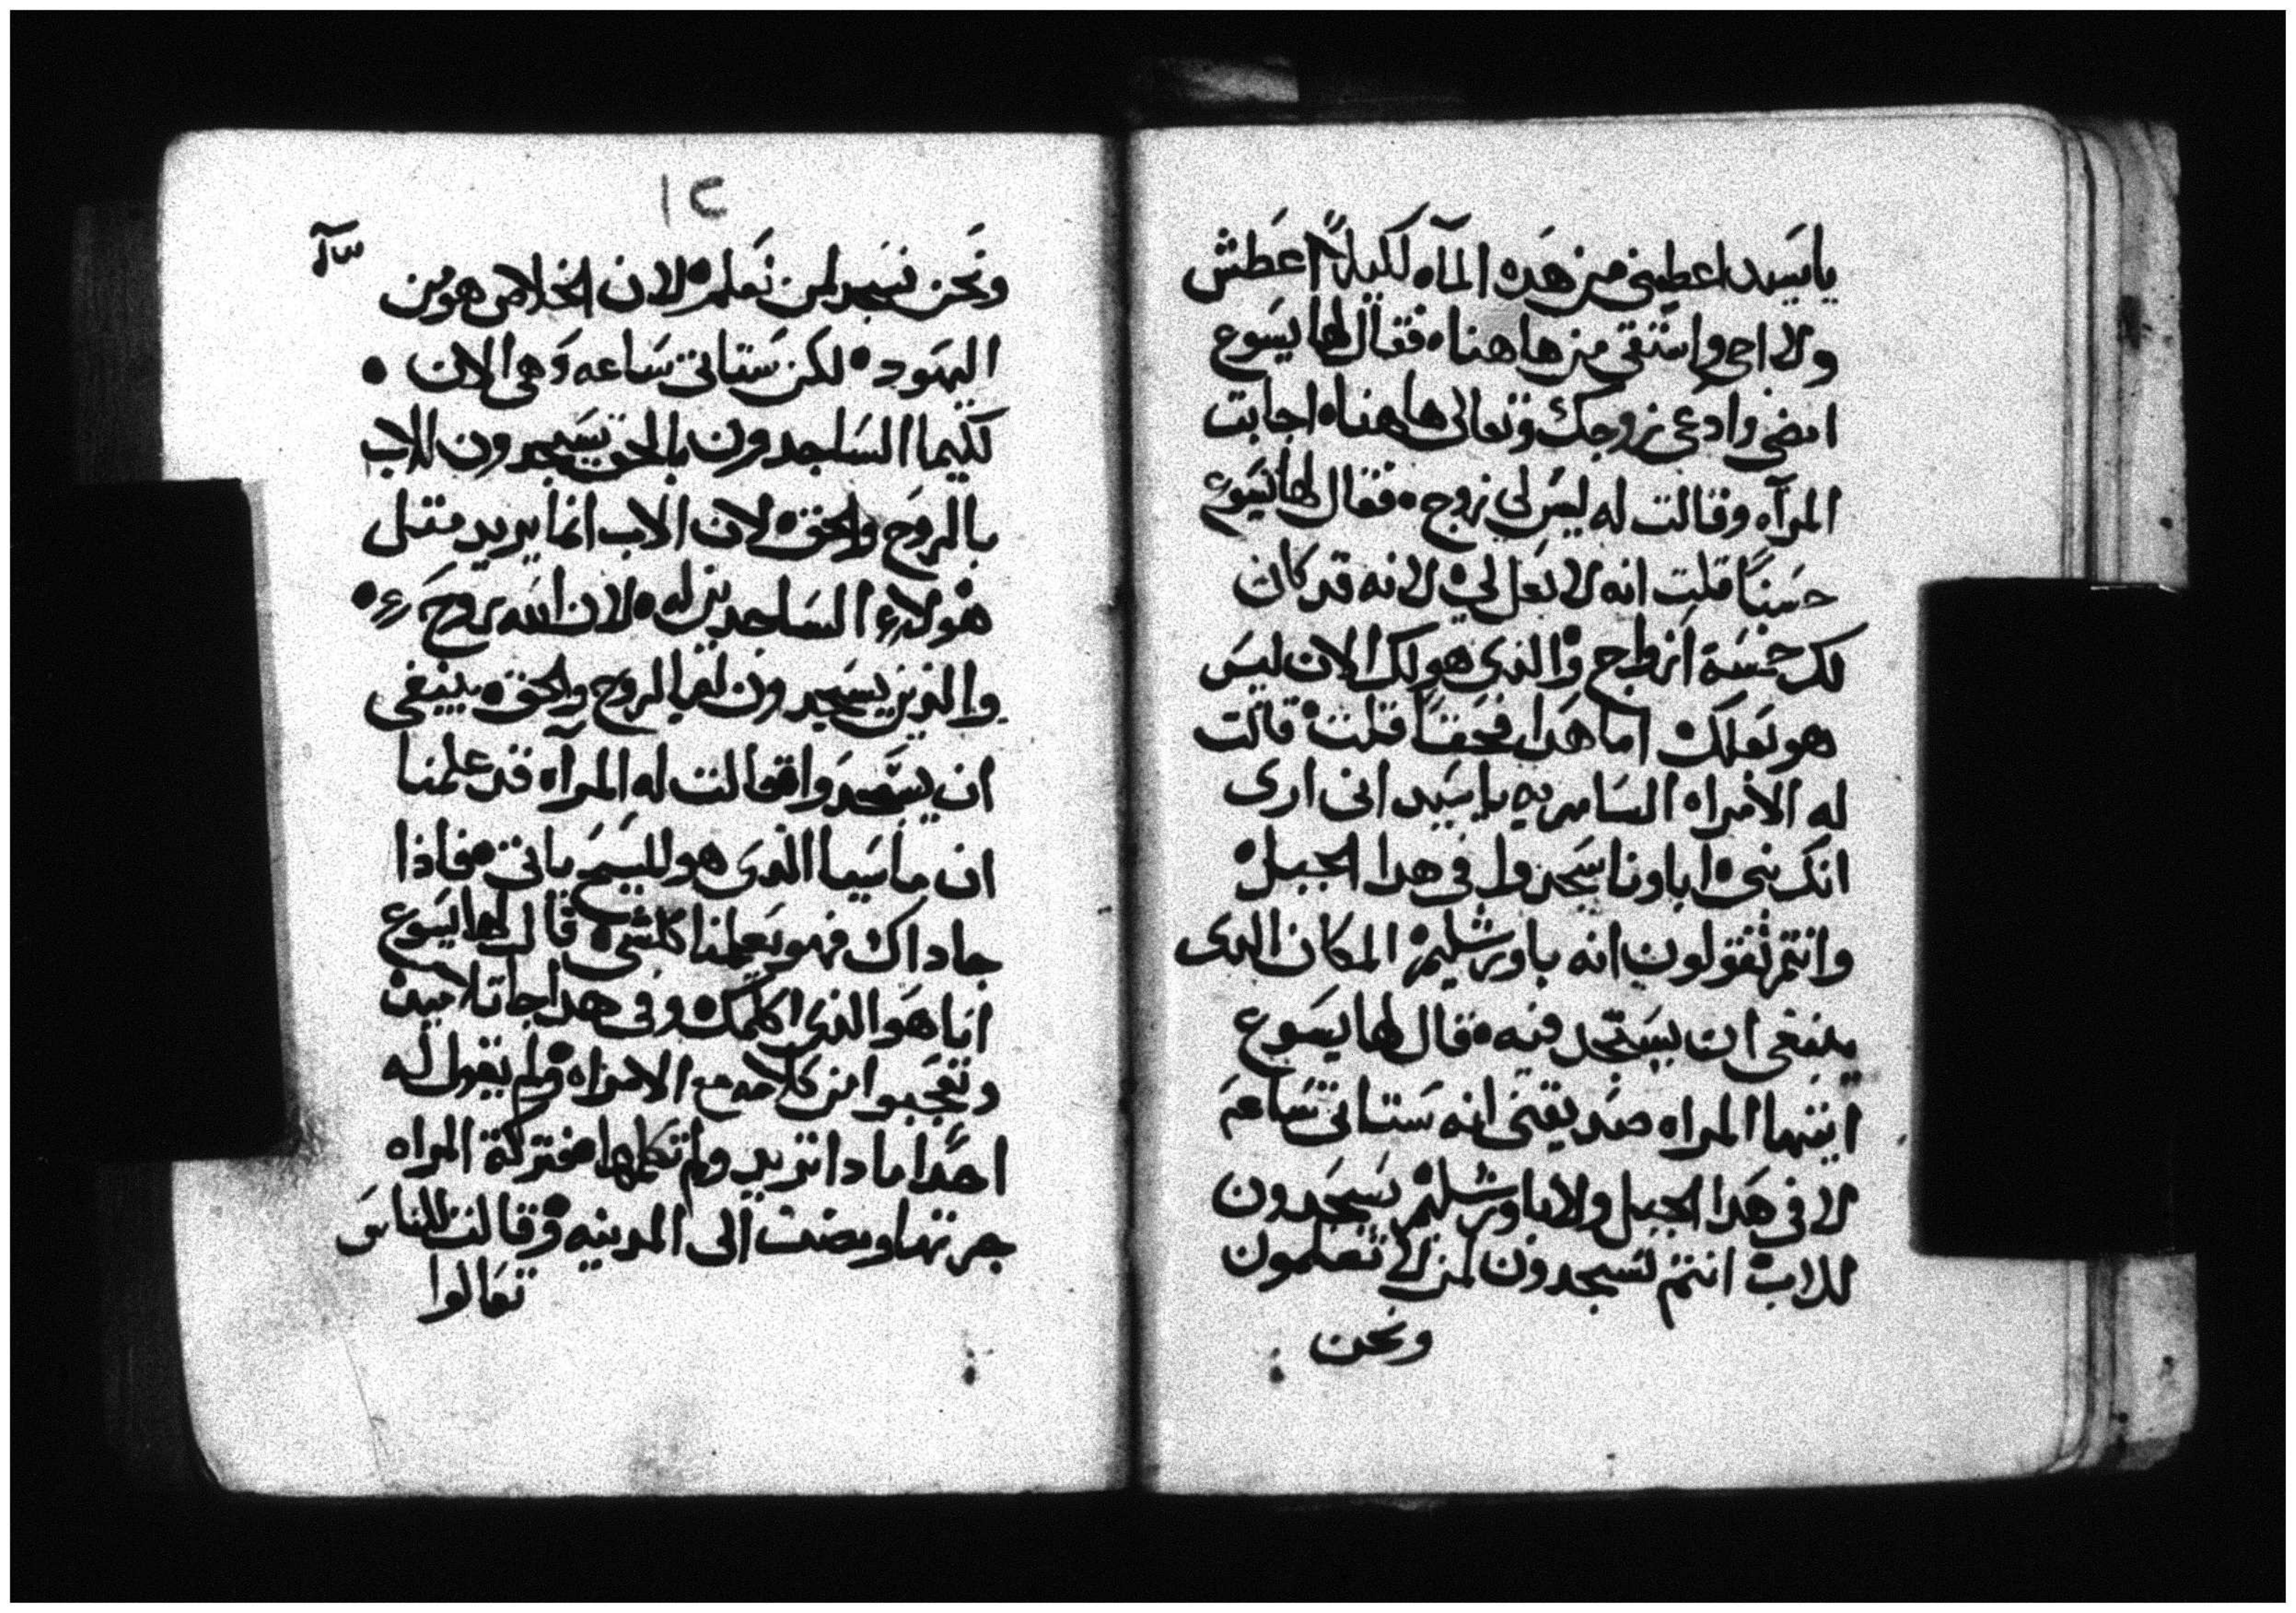 ياسيد اعطيني من هذه المآه لكيلا اعطش
ولا اجي واستقي من هاهناه فقال لها يسوع
امضي وادعي زوجك وتعالي هاهناه اجابت
المرآه وقالت له ليس لي زوج ه فقال لها يسوع
حسنًا قلت انه لا بعل لي ه لانه قد كان
لك خمسة ازواج والذي هو لك الان ليس
هو بعلك اما هدا فحقًا قلت ه قالت
له الامراه السامريه ياسيد اني اري
انك نبي ه اباونا سجدوا في هدا الجبل ه
وانتم تقولون انه باورشليم المكان الدى
ينبغي ان يسجد فيه ه قال لها يسوع
ايتها المراه صدقيني انه ستاتي ساعه
لا في هدا الجبل ولا باورشليم يسجدون
للاب ه انتم تسجدون لمن لا تعلمون
ونحن
١٢
ونحن نسجد لمن نعلم ه لان الخلاص هو من
اليهود ه لكن ستاتي ساعه وهي الان
لكيما الساجدون بالحق يسجدون للاب
بالروح والحق ه لان الاب انما يريد متل
هولاء الساجدين له ه لان الله روح
والذين يسجدون له بالروح والحق ه ينبغي
ان يسجدوا قالت له المرآه قد علمنا
ان ماسيا الدى هو المسيح ياتي ه فاذا
جا داك فهو يعلمنا كلشي ه قال لها يسوع
انا هو الذي اكلمك ه وفي هدا جا تلاميده
وتعجبوا من كلامه مع الامراه ولم يقول له
احدًا مادا تريد ولم تكلمها ه فتركة المراه
جرتها ومضت الى المدينه ه وقالت للناس
تعالوا